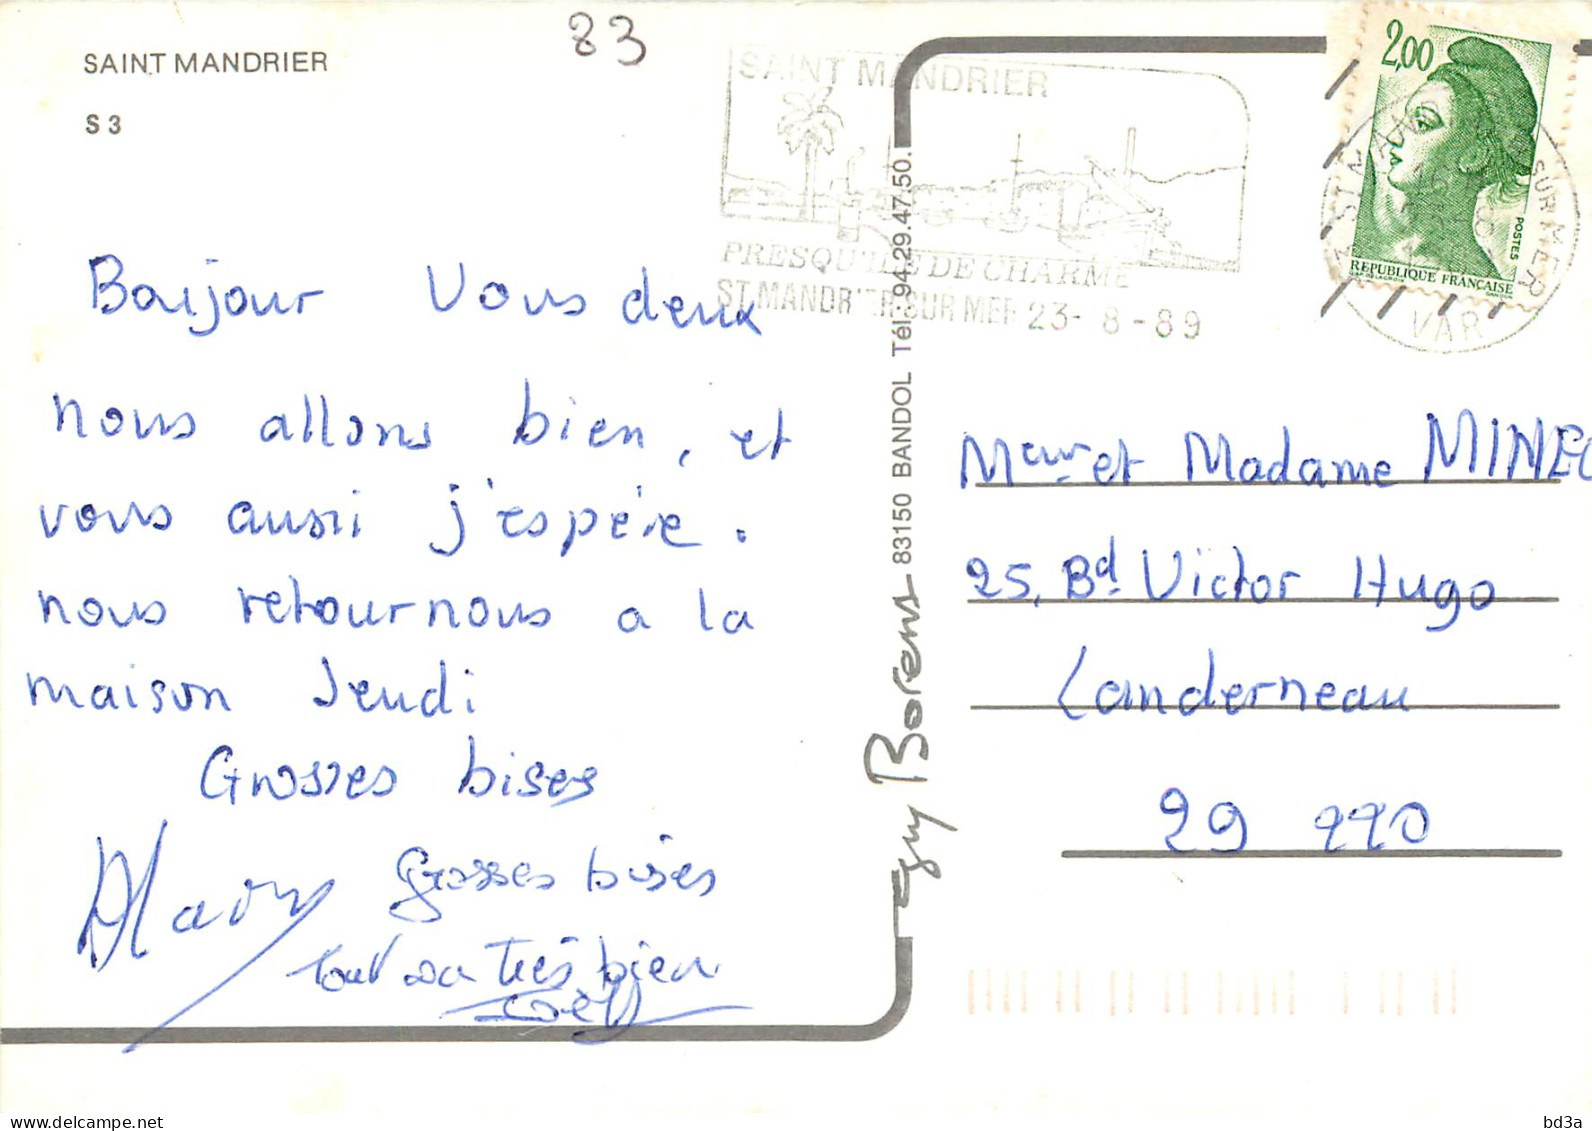 SAINT MANDRIER
S 3
83
SAINT MANDRIER
PRESQU'ILE DE CHARME
ST MANDRIER SUR MER 23-8-89
2,00
POSTES
REPUBLIQUE FRANÇAISE
SUR MER
VAR
Bonjour Vous deux
nous allons bien, et
vous aussi j'espére.
nous retournous a la
maison Jeudi
Grosses bises
Grosses bises
tout va très bien
Joël
83150 BANDOL Tél. 94.29.47.50.
guy Borens
Meur et Madame MINEC
25, Bd Victor Hugo
Landerneau
29 220
bd3a